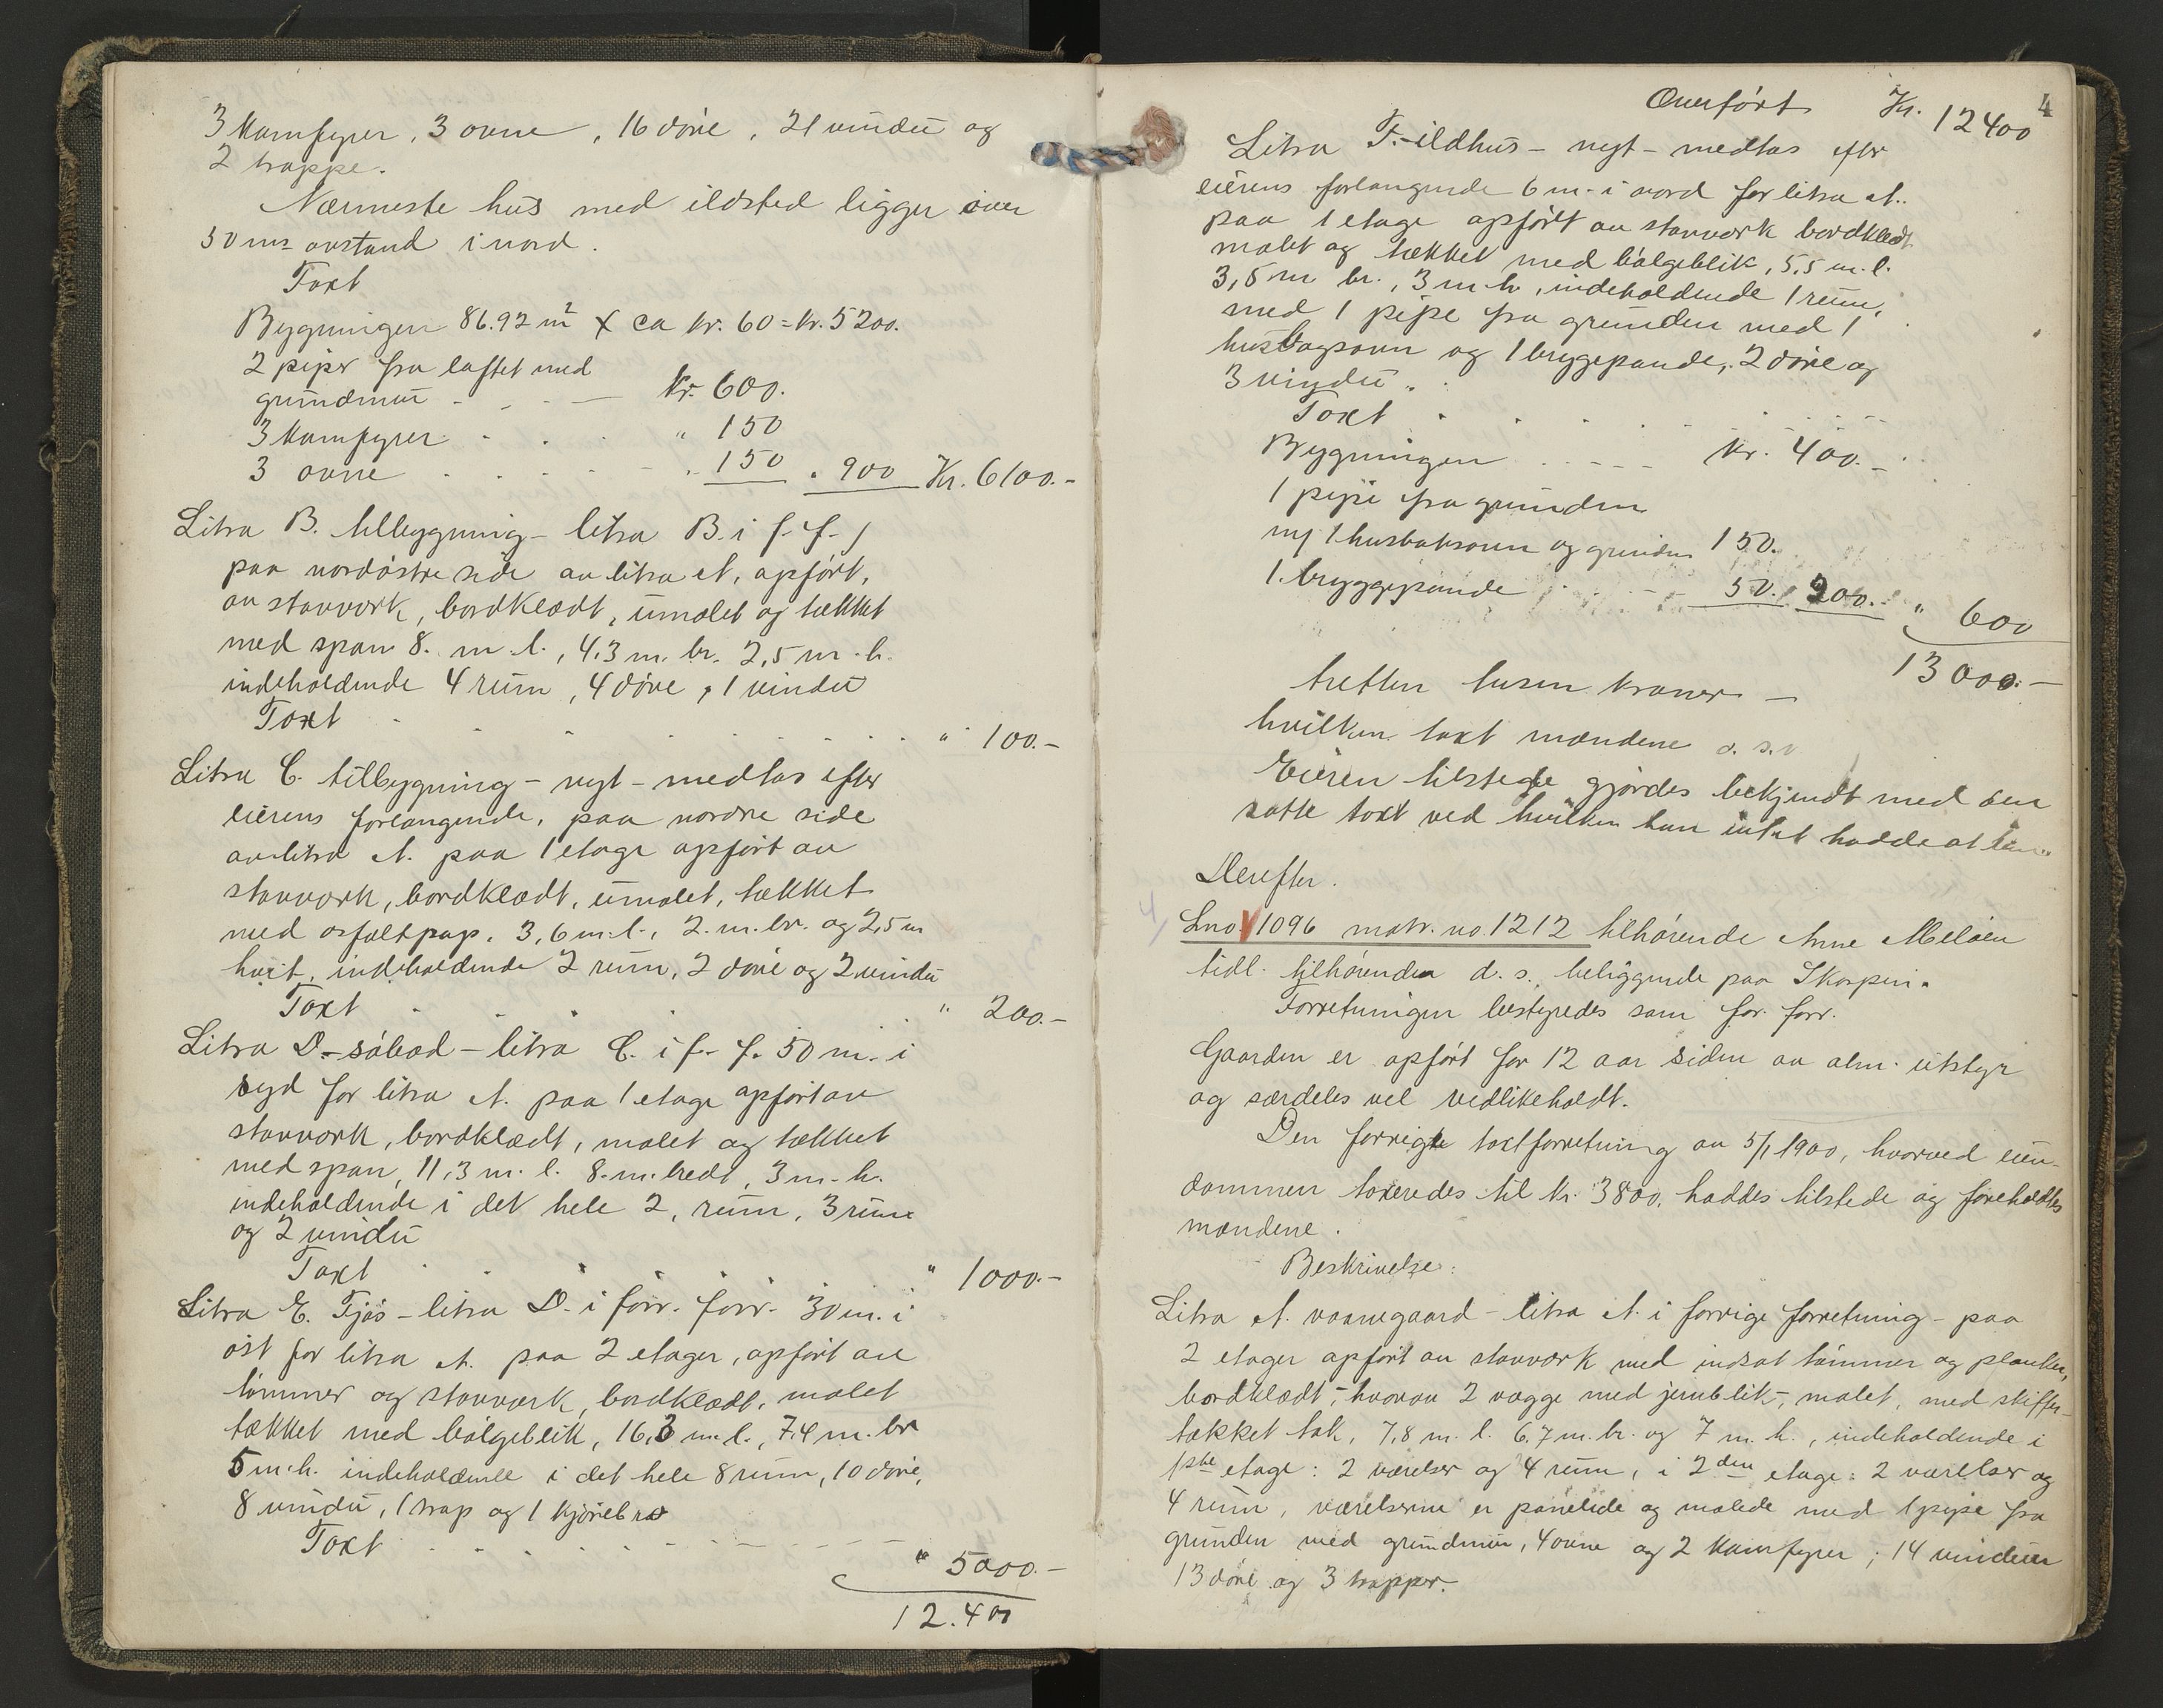 3 komfyrer, 3 ovne, 16 døre, 21 vindu og
2 trappe.
Nærmeste hus med ildsted ligger over
50 ms avstand i nord.
Taxt
Bygningen 86.92 m² x ca kr. 60 = kr. 5200.
2 piper fra loftet med
grundmur - - - - kr. 600.
3 komfyrer - - - " 150
3 ovne - - - - " 150 " 900 Kr. 6100.-
Litra B. tilbygning - litra B. i f. f. /
paa nordøstre side av litra A, opført,
av stavverk, bordklædt, umalet og tækket
med spon 8. m. l., 4.3 m. br. 2,5 m. h.
indeholdende 4 rum, 4 døre, 1 vindu
Taxt - - - - - " 100.-
Litra C. tilbygning - nyt - medtas efter
eierens forlangende, paa nordre side
av litra A. paa 1 etage opført av
stavverk, bordklædt, umalet, tækket
med asfaltpap, 3,6 m. l., 2. m. br. og 2,5 m
høit, indeholdende 2 rum, 2 døre og 2 vindu
Taxt - - - - " 200.-
Litra D. - sjåbod - litra C. i f. f. 50 m. i
syd for litra A. paa 1 etage opført av
stavverk, bordklædt, malet og tækket
med spon, 11,3 m. l. 8. m. bredt, 3 m. h.
indeholdende i det hele 2, rum, 3 rum
og 2 vindu
Taxt - - - - " 1000.-
Litra E. Fjøs - litra D. i forr. forr. 30 m. i
øst for litra A. paa 2 etager, opført av
tømmer og stavverk, bordklædt, malet
tækket med bølgeblik, 16,3 m. l., 7,4 m. br
5 m. h. indeholdende i det hele 8 rum, 10 døre,
8 vindu, 1 trap og 1 kjørebro
Taxt - - - - - " 5000.-
12.400
4
Overført Kr. 12400
Litra F. - ildhus - nyt - medtas efter
eierens forlangende 6 m. i nord for litra A.
paa 1 etage opført av stavverk bordklædt
malet og tækket med bølgeblik, 5,5 m. l.
3,5 m br., 3 m. h, indeholdende 1 rum,
med 1 pipe fra grunden med 1
husbagsovn og 1 bryggepande, 2 døre og
3 vindu.
Taxt - - - - -
Bygningen - - - - kr. 400.-
1 pipe fra grunden
m/ 1 husbaksovn og grundm 150.
1. bryggepande - - - 50. 200.- " 600
13 000.-
tretten tusen kroner -
hvilken taxt mændene o. s. v.
Eieren tilstede gjordes bekjendt med den
satte taxt ved hvilken han intet hadde at
Derefter.
4/
Lno. 1096 matr. no. 1212 tilhørende Arne Meløen
tidl. tilhørende d. s., beliggende paa Skorpen.
Forretningen bestyredes som for. forr.
Gaarden er opført for 12 aar siden av alm. utstyr
og særdeles vel vedlikeholdt.
Den forrige taxtforretning av 5/1 1900, hvorved eien-
dommen taxeredes til kr. 3800. haddes tilstede og foreholdtes
mændene.
Beskrivelse:
Litra A. vaanegaard - litra A. i forrige forretning - paa
2 etager opført av stavverk med indsat tømmer og planker,
bordklædt, - hvorav 2 vægge med jernblik -, malet, med skiffer-
tækket tak, 7,8 m. l. 6,7 m. br. og 7 m. h., indeholdende i
1ste etage: 2 værelser og 4 rum, i 2den etage: 2 værelser og
4 rum, værelserne er panelede og malede med 1 pipe fra
grunden med grundmur, 4 ovne og 2 komfyrer; 14 vinduer
13 døre og 3 trapper.